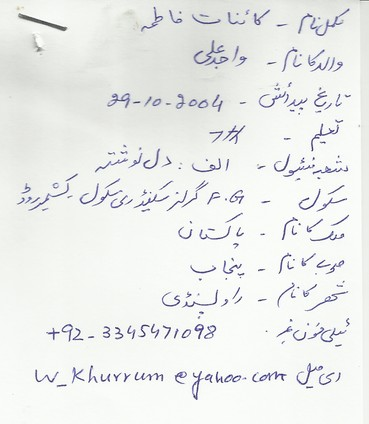 مکمل نام - کائنات فاطمہ
والد کا نام - واجد علی
تاریخ پیدائش - 29-10-2004
تعلیم - 7th
الف : دل نوشتہ
سکول - F.G گرلز سکینڈری سکول کشمیر روڈ
ملک کا نام - پاکستان
صوبہ کا نام - پنجاب
شھر کا نام - راولپنڈی
ٹیلی فون نمبر - +92-3345471098
ای میل W_Khurrum@yahoo.com